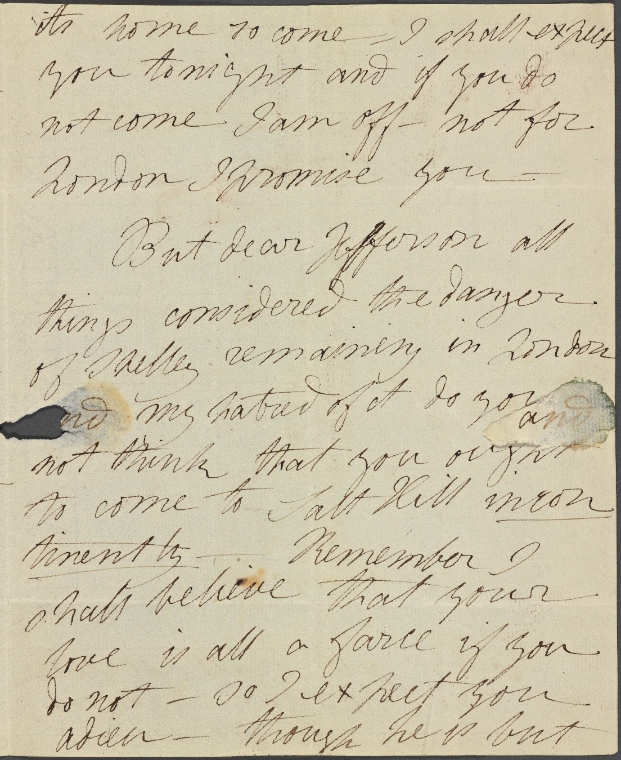 its home to come - I shall expect
you tonight and if you do
not come I am off - not for
London I promise you -
But dear Jefferson all
things considered the danger
of Shelley remaining in London
and my hatred of it do you and
not think that you ought
to come to Salt Hill incon
tinently - Remember I
shall believe that your
love is all a farce if you
do not - so I expect you
adieu - though he is but